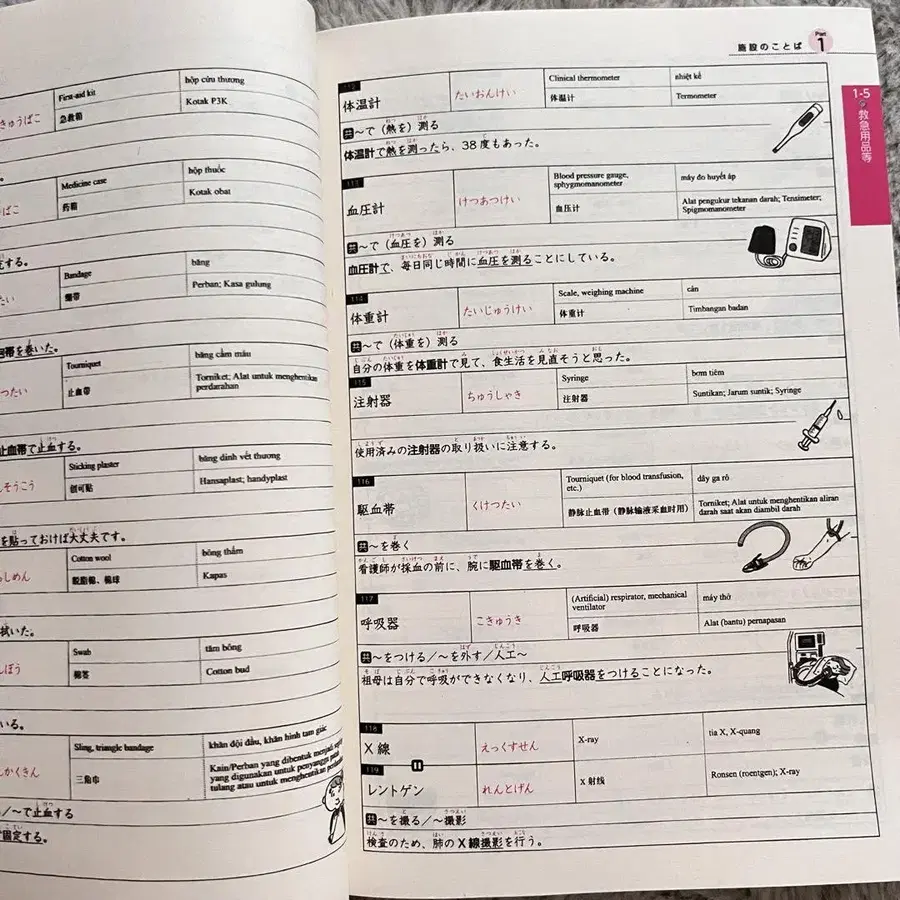 hộp cứu thương
First-aid kit
Kotak P3K
きゅうばこ
急救箱
hộp thuốc
Medicine case
Kotak obat
ばこ
药箱
する。
băng
Bandage
Perban; Kasa gulung
たい
绷带
帯を巻いた。
băng cầm máu
Tourniquet
Torniket; Alat untuk menghentikan
perdarahan
つたい
止血带
止血帯で止血する。
băng dính vết thương
Sticking plaster
Hansaplast; handyplast
そうこう
创可贴
を貼っておけば大丈夫です。
bông thấm
Cotton wool
Kapas
しめん
脱脂棉、棉球
拭いた。
tăm bông
Swab
Cotton bud
ぼう
棉签
いる。
khăn đội đầu, khăn hình tam giác
Sling, triangle bandage
Kain/Perban yang dibentuk menjadi
yang digunakan untuk penyangga
tulang atau untuk menghentikan
かくきん
三角巾
/～で止血する
固定する。
施設のことば
Part
1
1-5
救急用品等
112
体温計
たいおんけい
Clinical thermometer
nhiệt kế
体温计
Termometer
共～で（熱を）測る
体温計で熱を測ったら、38度もあった。
113
血圧計
けつあつけい
Blood pressure gauge,
sphygmomanometer
máy đo huyết áp
血压计
Alat pengukur tekanan darah; Tensimeter;
Spigmomanometer
共～で（血圧を）測る
血圧計で、毎日同じ時間に血圧を測ることにしている。
114
体重計
たいじゅうけい
Scale, weighing machine
cân
体重计
Timbangan badan
共～で（体重を）測る
自分の体重を体重計で見て、食生活を見直そうと思った。
115
注射器
ちゅうしゃき
Syringe
bơm tiêm
注射器
Suntikan; Jarum suntik; Syringe
使用済みの注射器の取り扱いに注意する。
116
駆血帯
くけつたい
Tourniquet (for blood transfusion,
etc.)
dây ga rô
静脉止血带（静脉输液采血时用）
Torniket; Alat untuk menghentikan aliran
darah saat akan diambil darah
共～を巻く
看護師が採血の前に、腕に駆血帯を巻く。
117
呼吸器
こきゅうき
(Artificial) respirator, mechanical
ventilator
máy thở
呼吸器
Alat (bantu) pernapasan
共～をつける／～を外す／人工～
祖母は自分で呼吸ができなくなり、人工呼吸器をつけることになった。
118
X線
えっくすせん
X-ray
tia X, X-quang
119
レントゲン
れんとげん
X射线
Ronsen (roentgen); X-ray
共～を撮る／～撮影
検査のため、肺のX線撮影を行う。